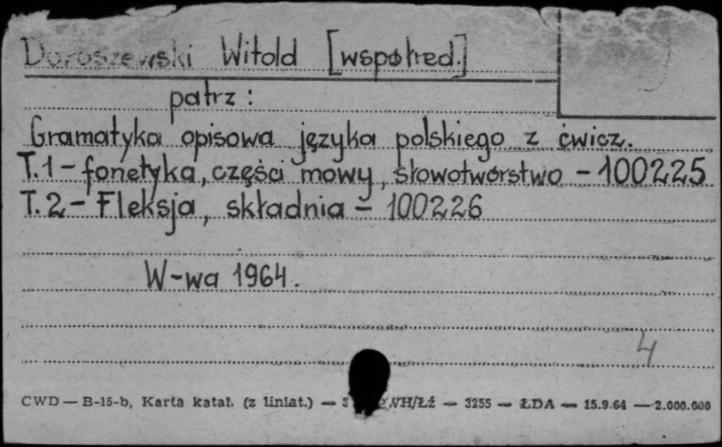 Doroszewski Witold [współred.]
patrz:
Gramatyka opisowa języka polskiego z ćwicz.
T.1 - fonetyka, części mowy, słowotwórstwo - 100225
T.2 - Fleksja, składnia - 100226
W-wa 1964.
4
CWD — B-15-b, Karta katal. (z liniat.) — WH/Łź — 3255 — ŁDA — 15.9.64 — 2.000.000